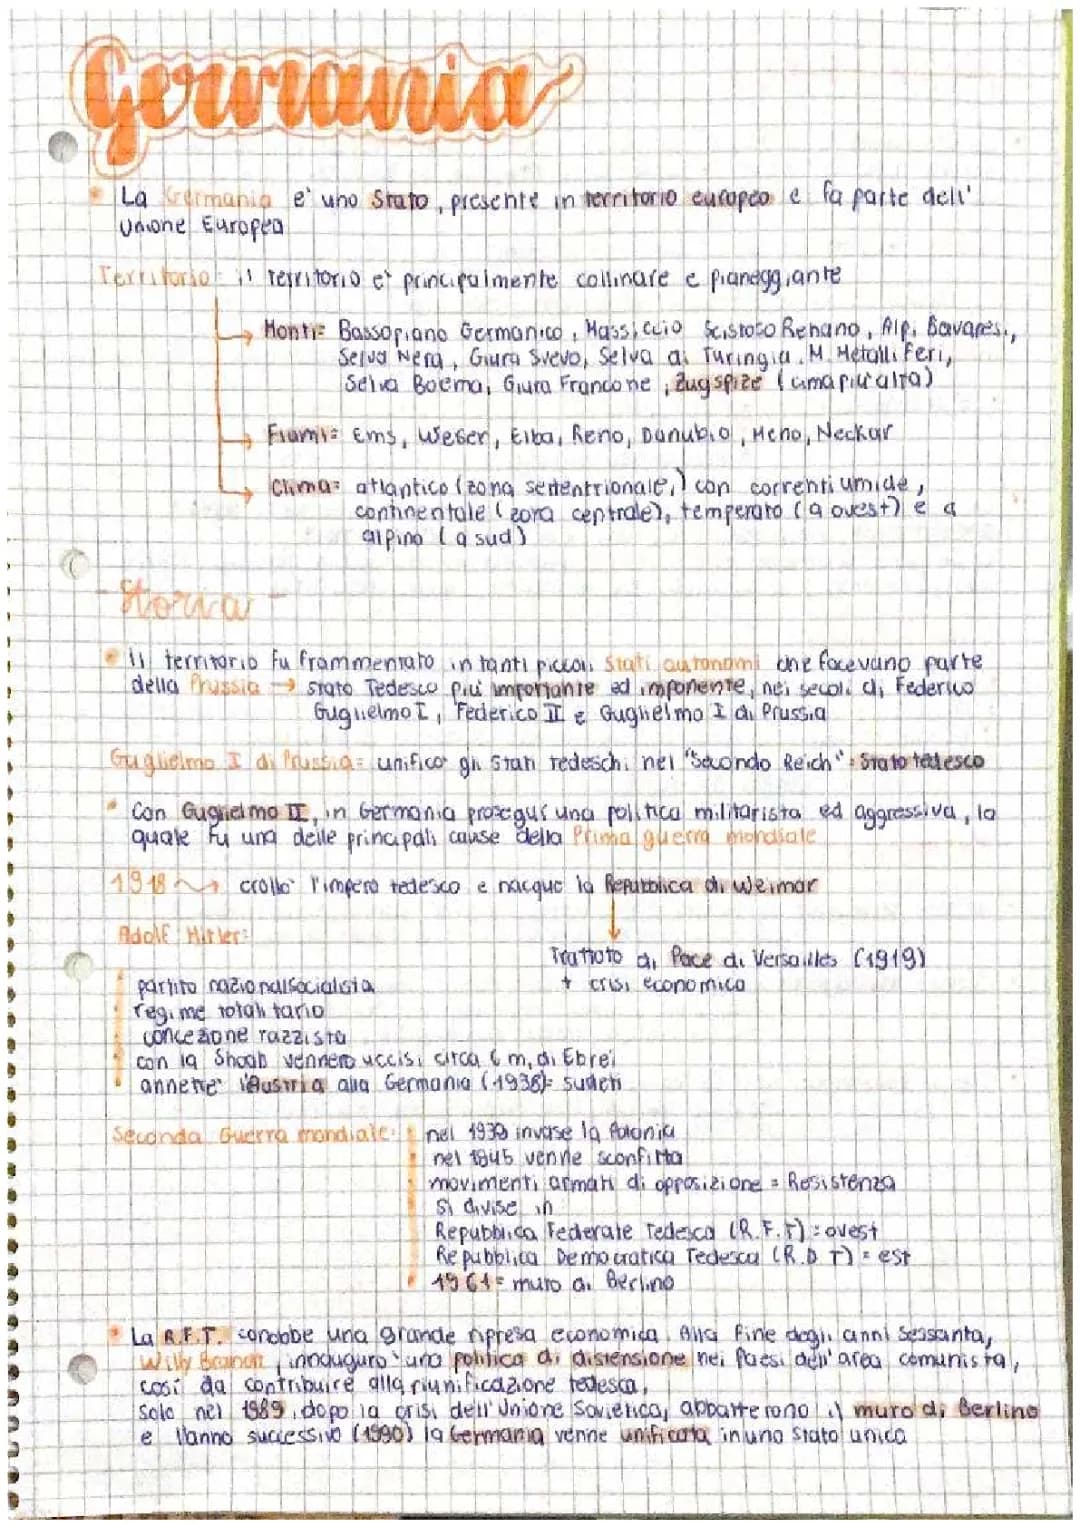 Germania
La Germania e' uno Stato, presente in territorio europeo e fa parte dell'
Unione Europea
Territorio: il territorio e' principalmente collinare e pianeggiante
Monti= Bassopiano Germanico, Massiccio Scistoso Renano, Alpi Bavaresi,
Selva Nera, Giura Svevo, Selva di Turingia, M. Metalliferi,
Selva Boema, Giura Francone, Zugspize (cima più alta)
Fiumi= Ems, Weser, Elba, Reno, Danubio, Meno, Neckar
Clima= atlantico (zona settentrionale,) con correnti umide,
continentale (zona centrale), temperato (a ovest) e
alpino (a sud)
- Storia -
Il territorio fu frammentato in tanti piccoli Stati autonomi che facevano parte
della Prussia → stato Tedesco più importante ed imponente, nei secoli di Federico
Guglielmo I, Federico II e Guglielmo I di Prussia
Guglielmo I di Prussia= unifico' gli Stati tedeschi nel "Secondo Reich": Stato tedesco
Con Guglielmo II, in Germania proseguì una politica militarista ed aggressiva, la
quale fu una delle principali cause della Prima guerra mondiale
1918 → crollo' l'impero tedesco e nacque la Repubblica di Weimar
Adolf Hitler:
Trattato di Pace di Versailles (1919)
+ crisi economica
partito nazionalsocialista
regime totalitario
concezione razzista
con la Shoah vennero uccisi circa 6 m. di Ebrei
annette' l'Austria alla Germania (1938)= sudeti
Seconda Guerra mondiale: nel 1939 invase la Polonia
nel 1945 venne sconfitta
movimenti armati di opposizione = Resistenza
si divise in
Repubblica Federale Tedesca (R.F.T) = ovest
Repubblica Democratica Tedesca (R.D.T) = est
1961= muro di Berlino
La R.F.T. conobbe una grande ripresa economica. Alla fine degli anni Sessanta,
Willy Brandt, innauguro' una politica di distensione nei Paesi dell'area comunista,
così da contribuire alla riunificazione tedesca,
Solo nel 1989, dopo la crisi dell'Unione Sovietica, abbatterono il muro di Berlino
e l'anno successivo (1990) la Germania venne unificata in uno Stato unico